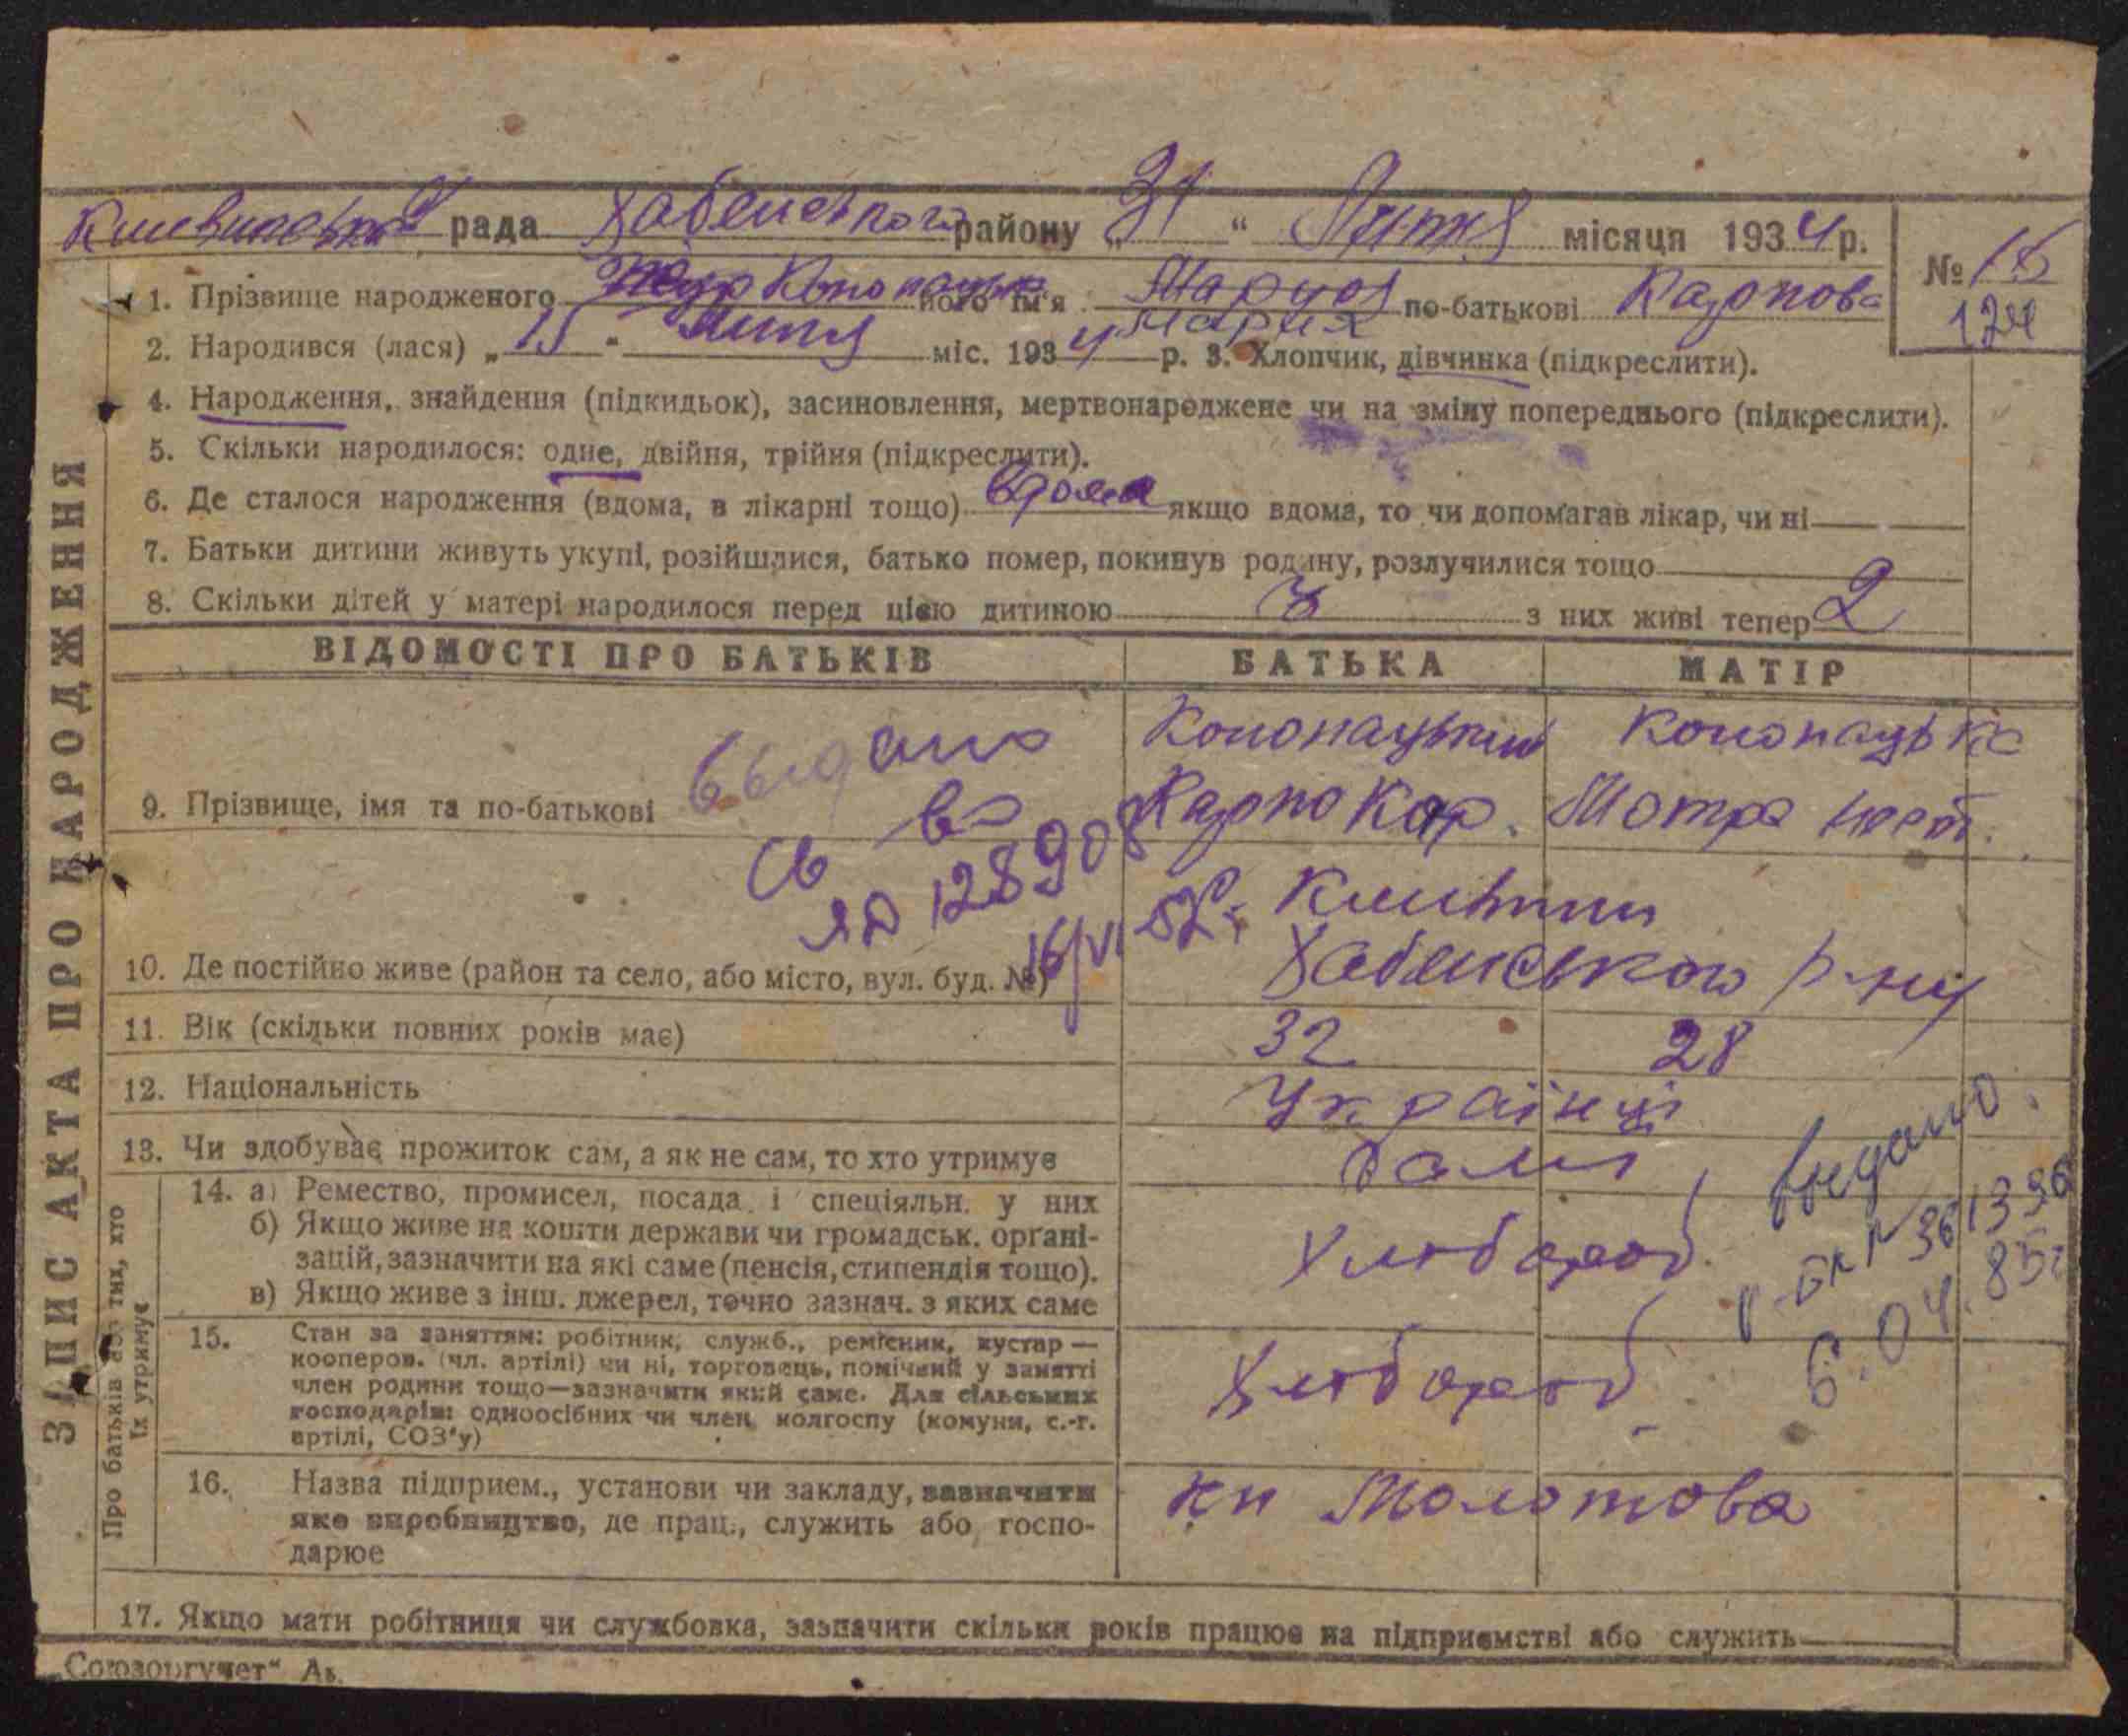 рада Хабенського району „ 31 " Липня місяця 1934 р.
№ 15
124
1. Прізвище народженого Конопацька його ім'я Маруся по-батькові Карпова
Мария
2. Народився (лася) „ 15 " Липня міс. 1934 р. 3. Хлопчик, дівчинка (підкреслити).
4. Народження, знайдення (підкидьок), засиновлення, мертвонароджене чи на зміну попереднього (підкреслити).
5. Скільки народилося: одне, двійня, трійня (підкреслити).
6. Де сталося народження (вдома, в лікарні тощо) вдома якщо вдома, то чи допомагав лікар, чи ні
7. Батьки дитини живуть укупі, розійшлися, батько помер, покинув родину, розлучилися тощо
8. Скільки дітей у матері народилося перед цією дитиною з них живі тепер 2
ЗАПИС АКТА ПРО НАРОДЖЕННЯ
ВІДОМОСТІ ПРО БАТЬКІВ БАТЬКА МАТІР
9. Прізвище, імя та по-батькові
Конопацький Конопацька
Карпо Кар. Мотря
выдано
св во
ЯД 128908
16/VI 52г.
10. Де постійно живе (район та село, або місто, вул. буд. №)
Хабенського р-ну
11. Вік (скільки повних років має) 32 28
12. Національність Українці
13. Чи здобуває прожиток сам, а як не сам, то хто утримує Сами
Про батьків або тих, хто
їх утримує
14. а) Ремество, промисел, посада і спеціяльн. у них
б) Якщо живе на кошти держави чи громадськ. орґані-
зацій, зазначити на які саме (пенсія, стипендія тощо).
в) Якщо живе з інш. джерел, точно зазнач. з яких саме
Хлібороб
выдано
361396
6.04.85г
15. Стан за заняттям: робітник, служб., ремісник, кустар —
кооперов. (чл. артілі) чи ні, торговець, помічний у занятті
член родини тощо—зазначити який саме. Для сільських
господарів: одноосібних чи член колгоспу (комуни, с.-г.
артілі, СОЗ'у)
Хлібороб
16. Назва підприєм., установи чи закладу, зазначити
яке виробництво, де прац., служить або госпо-
дарює
Молотова
17. Якщо мати робітниця чи службовка, зазначити скільки років працює на підприємстві або служить
„Союзоргучет"